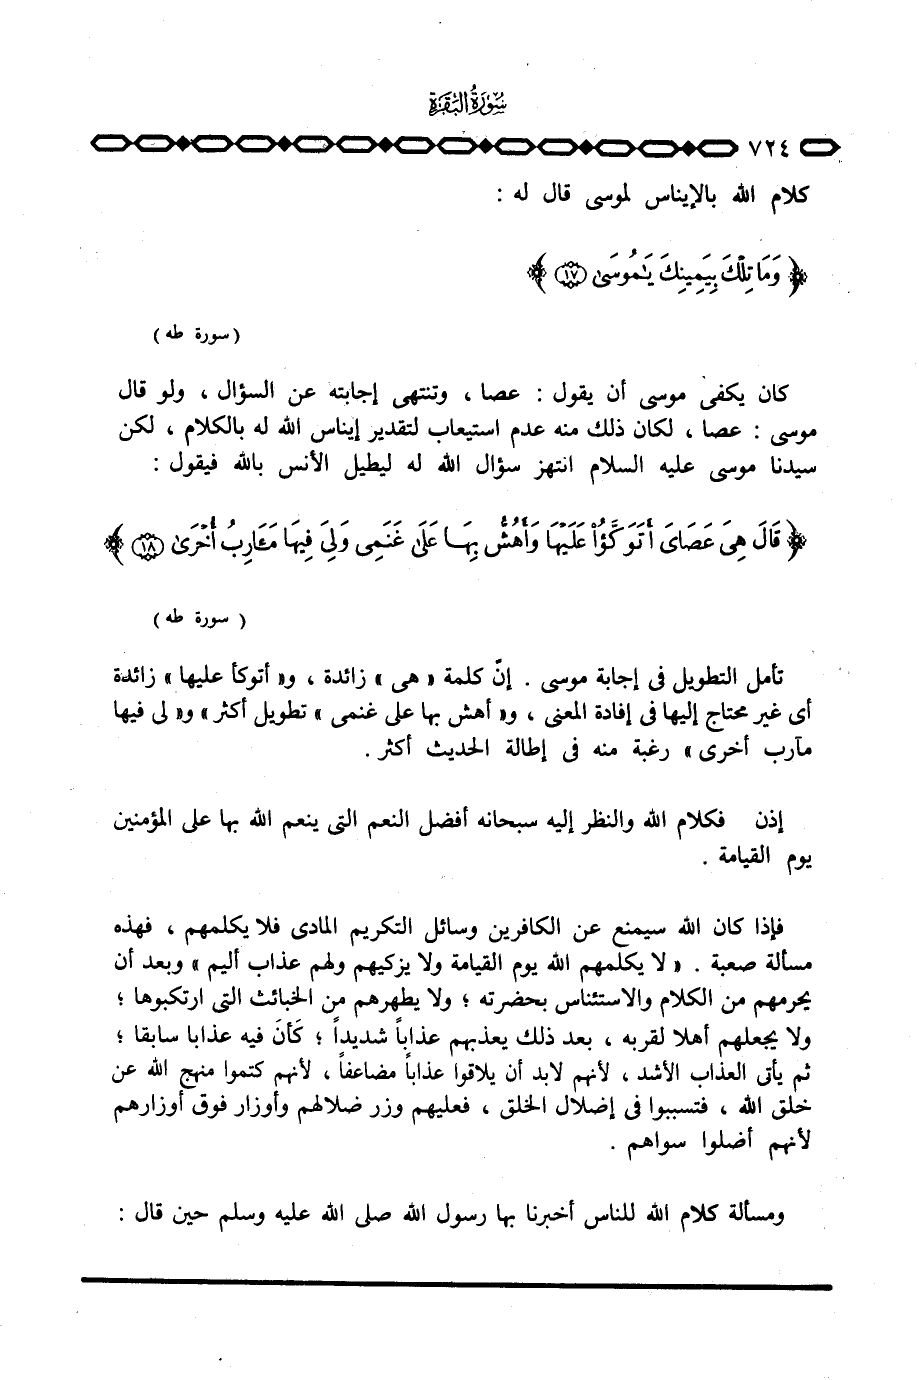 سُورَةُ البَقَرَةِ
٧٢٤
كلام الله بالإيناس لموسى قال له :
﴿ وَمَا تِلْكَ بِيَمِينِكَ يَـٰمُوسَىٰ ١٧ ﴾
( سورة طه )
كان يكفى موسى أن يقول : عصا ، وتنتهى إجابته عن السؤال ، ولو قال
موسى : عصا ، لكان ذلك منه عدم استيعاب لتقدير إيناس الله له بالكلام ، لكن
سيدنا موسى عليه السلام انتهز سؤال الله له ليطيل الأنس بالله فيقول :
﴿ قَالَ هِىَ عَصَاىَ أَتَوَكَّؤُاْ عَلَيْهَا وَأَهُشُّ بِهَـا عَلَىٰ غَنَمِى وَلِىَ فِيهَا مَـَٔارِبُ أُخْرَىٰ ١٨ ﴾
( سورة طه )
تأمل التطويل فى إجابة موسى . إنّ كلمة « هى » زائدة ، و« أتوكأ عليها » زائدة
أى غير محتاج إليها فى إفادة المعنى ، و« أهش بها على غنمى » تطويل أكثر » و« لى فيها
مآرب أخرى » رغبة منه فى إطالة الحديث أكثر .
إذن فكلام الله والنظر إليه سبحانه أفضل النعم التى ينعم الله بها على المؤمنين
يوم القيامة .
فإذا كان الله سيمنع عن الكافرين وسائل التكريم المادى فلا يكلمهم ، فهذه
مسألة صعبة . « لا يكلمهم الله يوم القيامة ولا يزكيهم ولهم عذاب أليم » وبعد أن
يحرمهم من الكلام والاستئناس بحضرته ؛ ولا يطهرهم من الخبائث التى ارتكبوها ؛
ولا يجعلهم أهلا لقربه ، بعد ذلك يعذبهم عذاباً شديداً ؛ كَأنَ فيه عذابا سابقا ؛
ثم يأتى العذاب الأشد ، لأنهم لابد أن يلاقوا عذاباً مضاعفاً ، لأنهم كتموا منهج الله عن
خلق الله ، فتسببوا فى إضلال الخلق ، فعليهم وزر ضلالهم وأوزار فوق أوزارهم
لأنهم أضلوا سواهم .
ومسألة كلام الله للناس أخبرنا بها رسول الله صلى الله عليه وسلم حين قال :